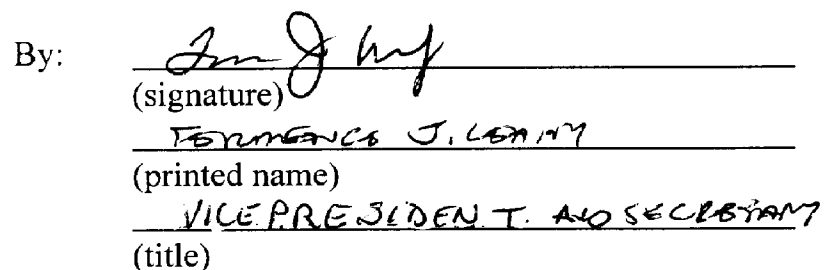 By:
(signature)
J. LEAHY
(printed name)
VICE PRESIDENT AND SECRETARY
(title)